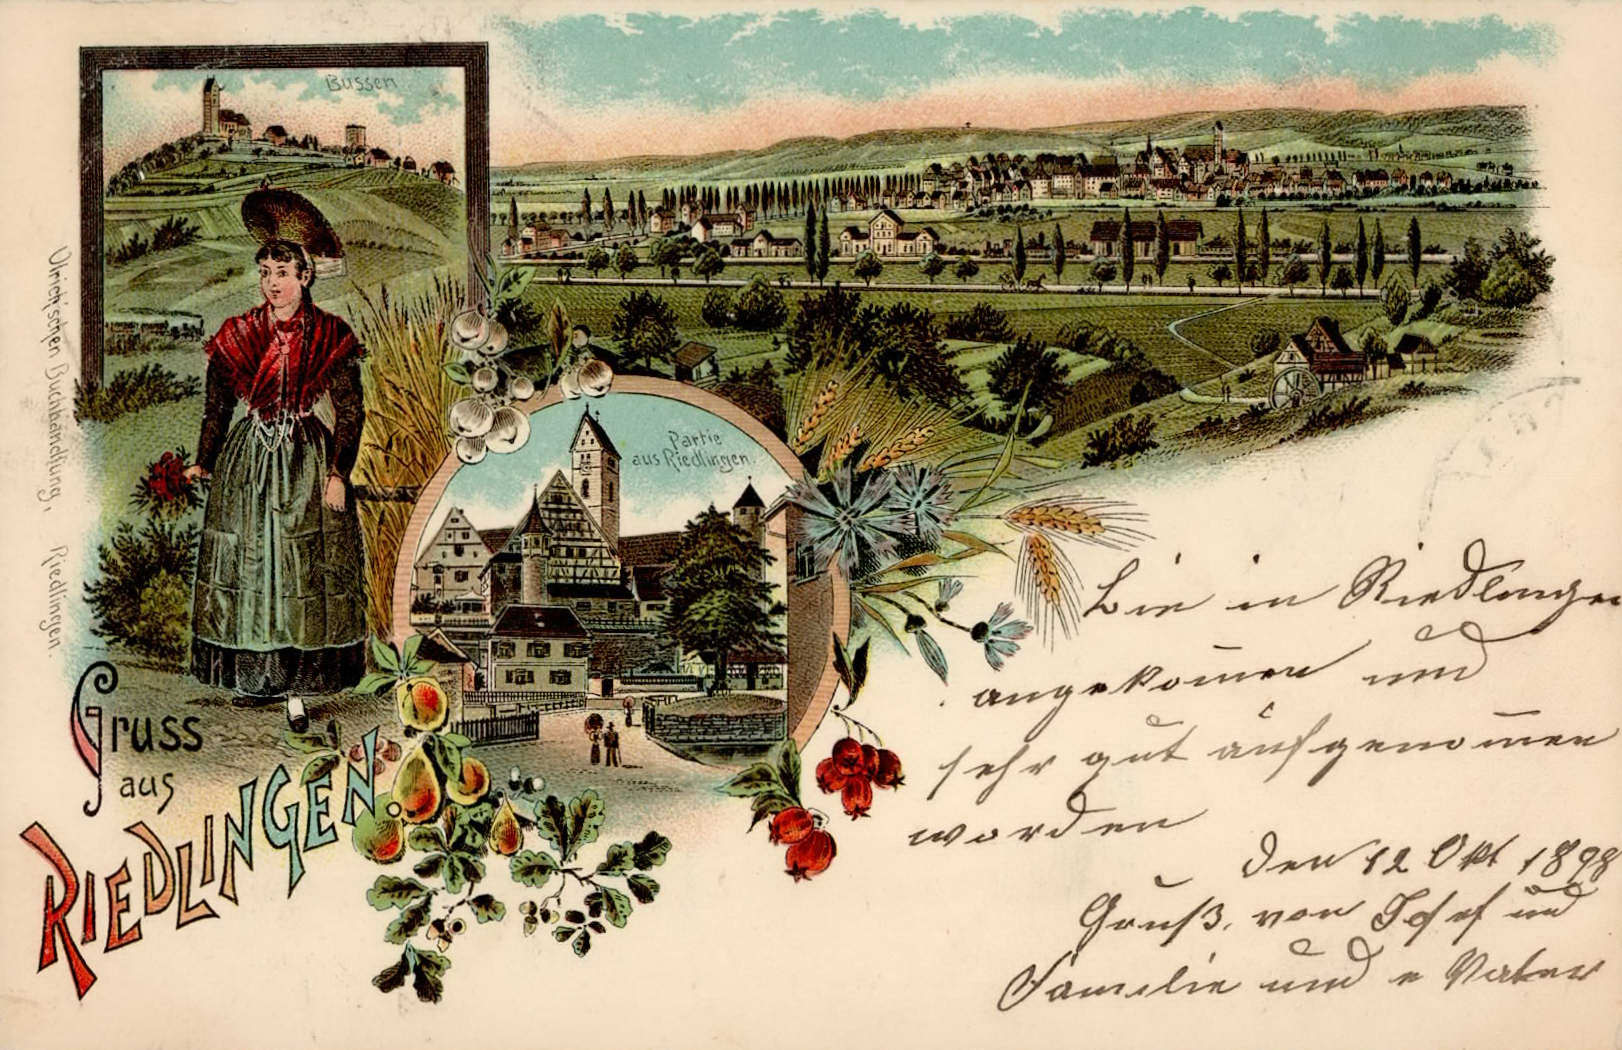 Bussen
Partie
aus Riedlingen.
Ulrich'schen Buchhandlung, Riedlingen.
Gruss
aus
RIEDLINGEN.
Bin in Riedlingen
angekom̄en und
sehr gut aufgenom̄en
worden
den 12 Okt 1898
Gruß. von Josef und
Familie und Vater